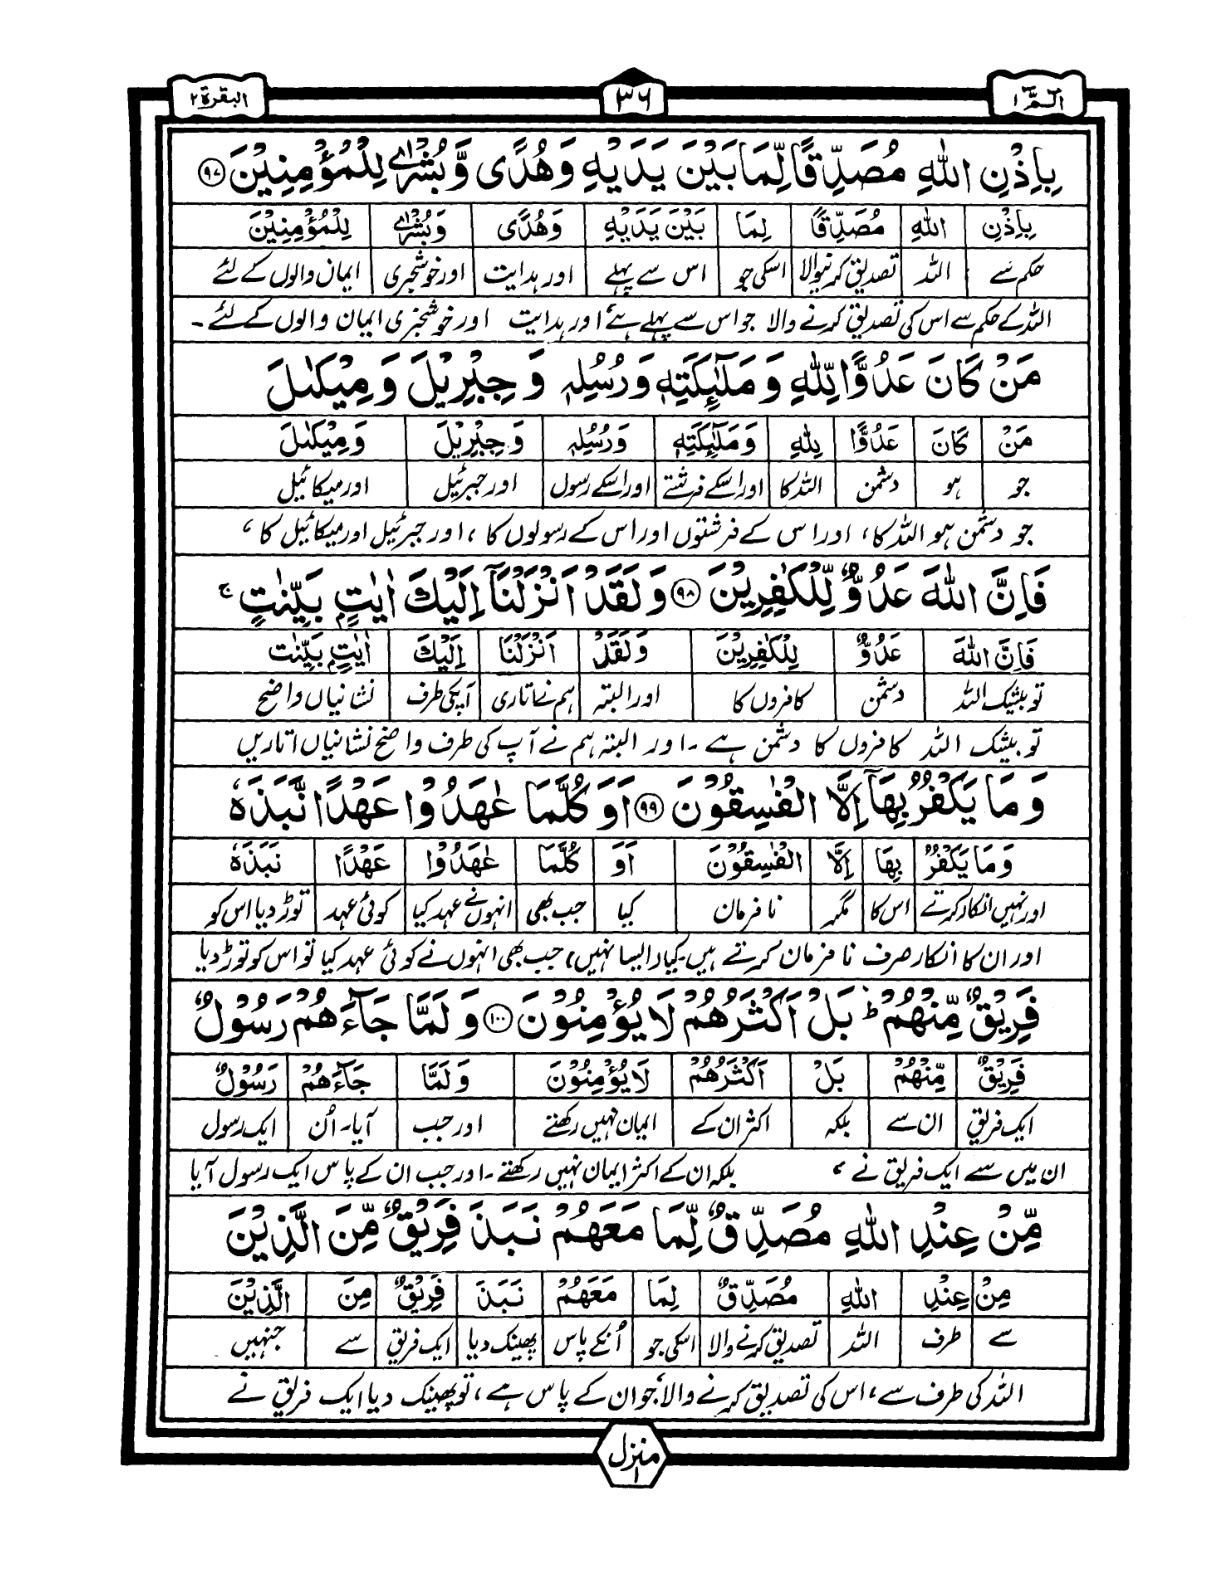 الٓمّٓ ١
٣٦
البقرة ٢
بِاِذْنِ اللّٰهِ مُصَدِّقًا لِّمَا بَيْنَ يَدَيْهِ وَهُدًى وَّبُشْرٰى لِلْمُؤْمِنِيْنَ ﴿٩٧﴾
بِاِذْنِ اللّٰهِ مُصَدِّقًا لِمَا بَيْنَ يَدَيْهِ وَهُدًى وَبُشْرٰى لِلْمُؤْمِنِيْنَ
حکم سے اللہ تصدیق کرنیوالا اسکی جو اس سے پہلے اور ہدایت اور خوشخبری ایمان والوں کے لئے
اللہ کے حکم سے اس کی تصدیق کرنے والا جو اس سے پہلے ہے اور ہدایت اور خوشخبری ایمان والوں کے لئے ۔
مَنْ كَانَ عَدُوًّا لِّلّٰهِ وَمَلٰٓئِكَتِهٖ وَرُسُلِهٖ وَجِبْرِيْلَ وَمِيْكٰىلَ
مَنْ كَانَ عَدُوًّا لِلّٰهِ وَمَلٰٓئِكَتِهٖ وَرُسُلِهٖ وَجِبْرِيْلَ وَمِيْكٰىلَ
جو ہو دشمن اللہ کا اور اسکے فرشتے اور اسکے رسول اور جبرئیل اور میکائیل
جو دشمن ہو اللہ کا، اور اس کے فرشتوں اور اس کے رسولوں کا ، اور جبرئیل اور میکائیل کا ،
فَاِنَّ اللّٰهَ عَدُوٌّ لِّلْكٰفِرِيْنَ ﴿٩٨﴾ وَلَقَدْ اَنْزَلْنَآ اِلَيْكَ اٰيٰتٍۭ بَيِّنٰتٍ ۚ
فَاِنَّ اللّٰهَ عَدُوٌّ لِلْكٰفِرِيْنَ وَلَقَدْ اَنْزَلْنَا اِلَيْكَ اٰيٰتٍۭ بَيِّنٰت
تو بیشک اللہ دشمن کافروں کا اور البتہ ہم نے اتاری آپکی طرف نشانیاں واضح
تو بیشک اللہ کافروں کا دشمن ہے ۔ اور البتہ ہم نے آپ کی طرف واضح نشانیاں اتاریں
وَمَا يَكْفُرُ بِهَآ اِلَّا الْفٰسِقُوْنَ ﴿٩٩﴾ اَوَكُلَّمَا عٰهَدُوْا عَهْدًا نَّبَذَهٗ
وَمَا يَكْفُرُ بِهَا اِلَّا الْفٰسِقُوْنَ اَوَ كُلَّمَا عٰهَدُوْا عَهْدًا نَبَذَهٗ
اور نہیں انکار کرتے اس کا مگر نافرمان کیا جب بھی انہوں نے عہد کیا کوئی عہد توڑ دیا اس کو
اور ان کا انکار صرف نافرمان کرتے ہیں۔ کیا (ایسا نہیں) جب بھی انہوں نے کوئی عہد کیا تو اس کو توڑ دیا
فَرِيْقٌ مِّنْهُمْ ؕ بَلْ اَكْثَرُهُمْ لَا يُؤْمِنُوْنَ ﴿١٠٠﴾ وَلَمَّا جَآءَهُمْ رَسُوْلٌ
فَرِيْقٌ مِّنْهُمْ بَلْ اَكْثَرُهُمْ لَا يُؤْمِنُوْنَ وَلَمَّا جَآءَهُمْ رَسُوْلٌ
ایک فریق ان سے بلکہ اکثر ان کے ایمان نہیں رکھتے اور جب آیا۔ اُن ایک رسول
ان میں سے ایک فریق نے ، بلکہ ان کے اکثر ایمان نہیں رکھتے ۔ اور جب ان کے پاس ایک رسول آیا
مِّنْ عِنْدِ اللّٰهِ مُصَدِّقٌ لِّمَا مَعَهُمْ نَبَذَ فَرِيْقٌ مِّنَ الَّذِيْنَ
مِنْ عِنْدِ اللّٰهِ مُصَدِّقٌ لِمَا مَعَهُمْ نَبَذَ فَرِيْقٌ مِنَ الَّذِيْنَ
سے طرف اللہ تصدیق کرنے والا اسکی جو اُنکے پاس پھینک دیا ایک فریق سے جنہیں
اللہ کی طرف سے، اس کی تصدیق کرنے والا جو ان کے پاس ہے ، تو پھینک دیا ایک فریق نے
منزل ١